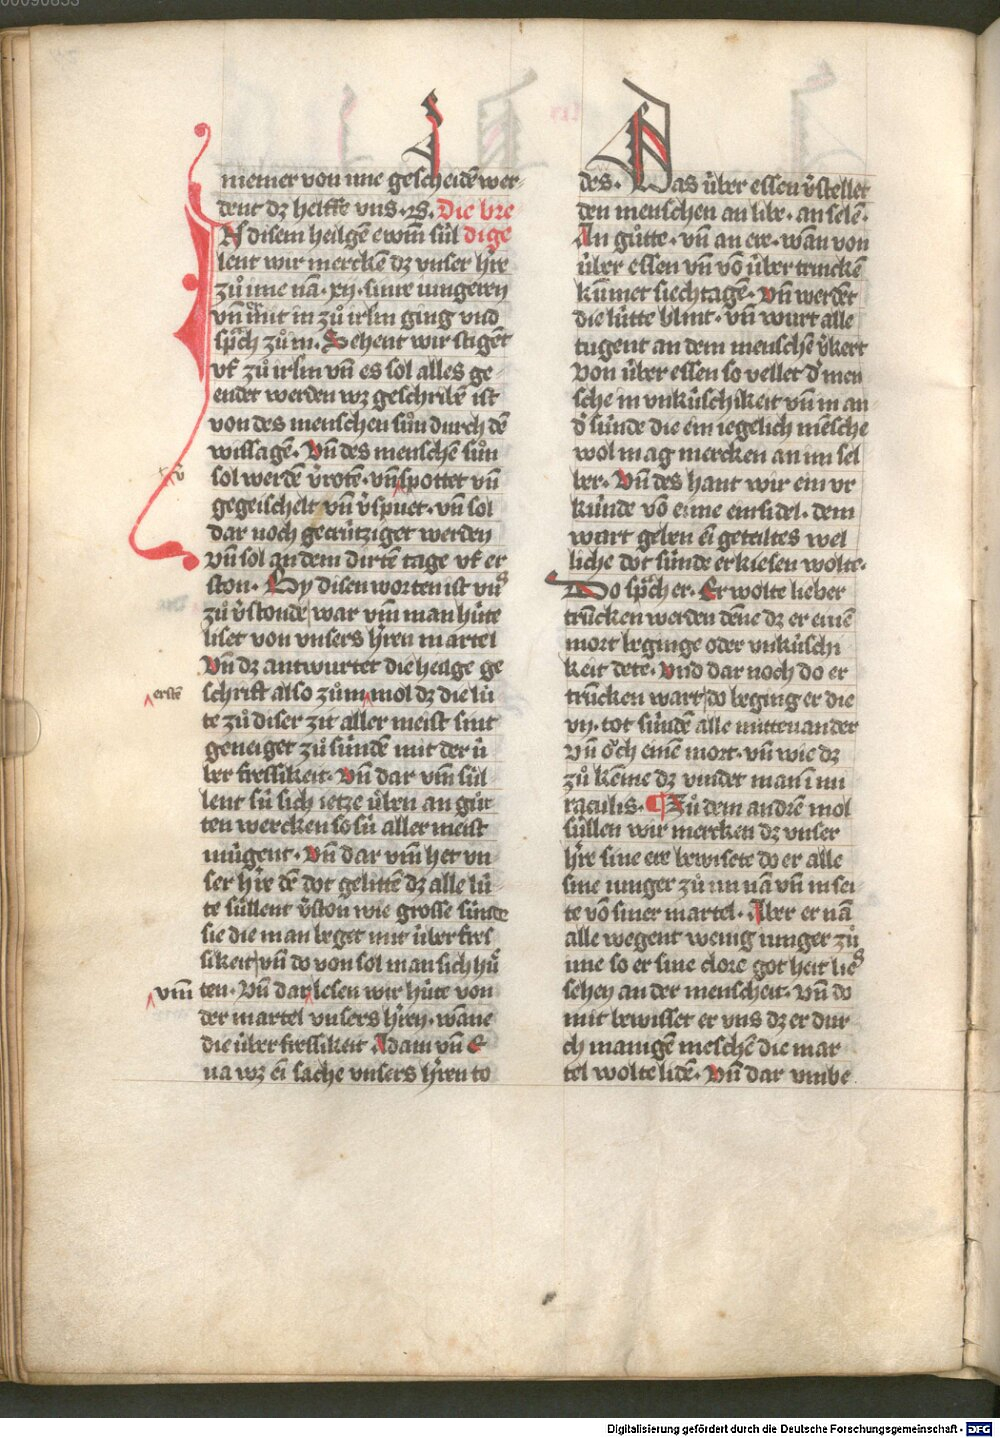 00090853
I
niemer von ime gescheidē wer-
dent dz helffe vns ·ꝛs. Die bre
IN disem heilgē ewm̄ sül dige
lent wir merckē dz vnser hʼre
zuͦ ime nā · xij · sinre iungeren
vn̄ mit in zuͦ irlm ging vnd
spͣch zuͦ in. Sehent wir stigēt
vf zuͦ irlm vn̄ es sol alles ge-
endet werden wz geschribē ist
von des menschen suͦn durch dē
wissagē · Vn̄ des menschē suͦn
sol werdē vʼrotē · vn̄ spottet vn̄
gegeischelt vn̄ vʼspuet · vn̄ sol
dar noch gecrútziget werden
vn̄ sol an dem dirtē tage vf er
ston · By disen worten ist vnˢ
zuͦ vʼstonde war vm̄ man húte
liset von vnsers hʼren martel
Vn̄ dz antwurtet die heilge ge
erstē schrift also zuͦm mol dz die lú
te zuͦ diser zit aller meist sint
geneiget zuͦ súndē mit der ú
ber fressikeit · Vn̄ dar vm̄ súl
lent sú sich ietze úben an guͦt
ten wercken so sú aller meist
múgent · Vn̄ dar vm̄ het vn
ser hʼre dē dot gelittē dz alle lú-
te súllent vʼston wie grosse súnde
sie die man beget mit úber fres
sikeit vn̄ do von sol man sich huͤ
vm̄ ten · Vn̄ dar lesen wir húte von
der martel vnsers hʼren · wāne
die úber fressikeit Adam vn̄ E
ua wz eī sache vnsers hʼren to
N
des · Was úber essen vʼstellet
den menschen an libe · an selē ·
An guͦtte · vn̄ an ere · wan von
úber essen vn̄ vō úber trinckē
kūmet siechtagē · Vn̄ werdēt
die lútte blint · vn̄ wurt alle
tugent an dem menschē vʼkert
Von úber essen so vellet dʼ men
sche in vnkúschikeit vn̄ in an
dʼ súnde die ein iegelich mēsche
wol mag mercken an im sel
ber · Vn̄ des hant wir ein vr
kúnde vō eime einsidel · dem
wart geben eī geteiltes wel
liche dot súnde er kiesen wolte ·
Do spͣch er · Er wolte lieber
trūcken werden dēne dz er einē
mort beginge oder vnkúschi
keit dete · Vnd dar noch do er
trūcken wart do beging er die
vij · tot súndē alle mittenander
vn̄ oͮch einē mort · vn̄ wie dz
zuͦ kēme dz vindet man ī mi
raculis · ¶ Zuͦ dem andrē mol
súllen wir mercken dz vnser
hʼre sine ere bewisete do er alle
sine iunger zuͦ im nā vn̄ in sei-
te vō siner martel · Aber er nā
alle wegent wenig iunger zuͦ
ime so er sine clore got heit lieˢ
sehen an der menscheit · Vn̄ do
mit bewiset er vns dz er dur
ch manigē meschē die mar
tel wolte lidē · Vn̄ dar vmbe
Digitalisierung gefördert durch die Deutsche Forschungsgemeinschaft - DFG